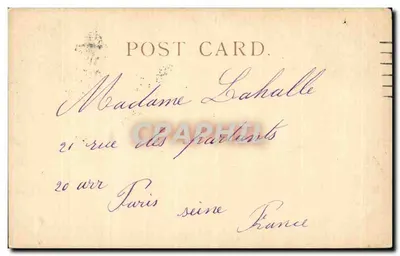 POST CARD.
Madame Lahalle
21 rue des partants
20 arr
Paris seine
France